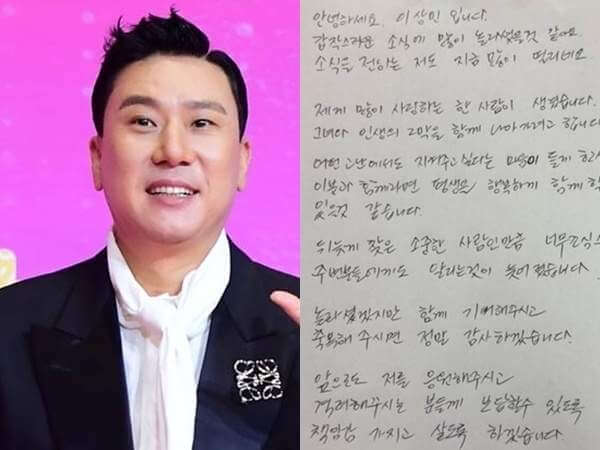 안녕하세요. 이 상민 입니다.
갑작스러운 소식에 많이 놀라셨을것 같아요
소식을 전하는 저도 지금 많이 떨리네요
제게 많이 사랑하는 한 사람이 생겼습니다.
그녀와 인생의 2막을 함께 나아가려고 합니다
어떤 고난에서도 지켜주고 싶다는 마음이 들게 하
이분과 함께라면 평생을 행복하게 함께
있을것 같습니다.
뒤늦게 찾은 소중한 사람인만큼 너무 조심스
주변분들에게도 알리는것이 늦어졌습니다
놀라셨겠지만 함께 기뻐해주시고
축복해 주시면 정말 감사하겠습니다.
앞으로도 저를 응원해주시고
격려해주시는 분들께 보답할수 있도록
책임감 가지고 살도록 하겠습니다